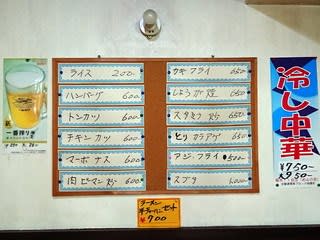 ライス 200.
ハンバーグ 600.
トンカツ 600.
チキンカツ 600.
マーボナス 600.
肉ピーマン炒 600.
カキフライ 650
しょうが焼 650
スタミナ炒 650
とりカラアゲ 650
アジ・フライ 500
スブタ 600
冷し中華
¥750-
¥950-
一番搾り
ラーメン
半チャーハンセット
¥900